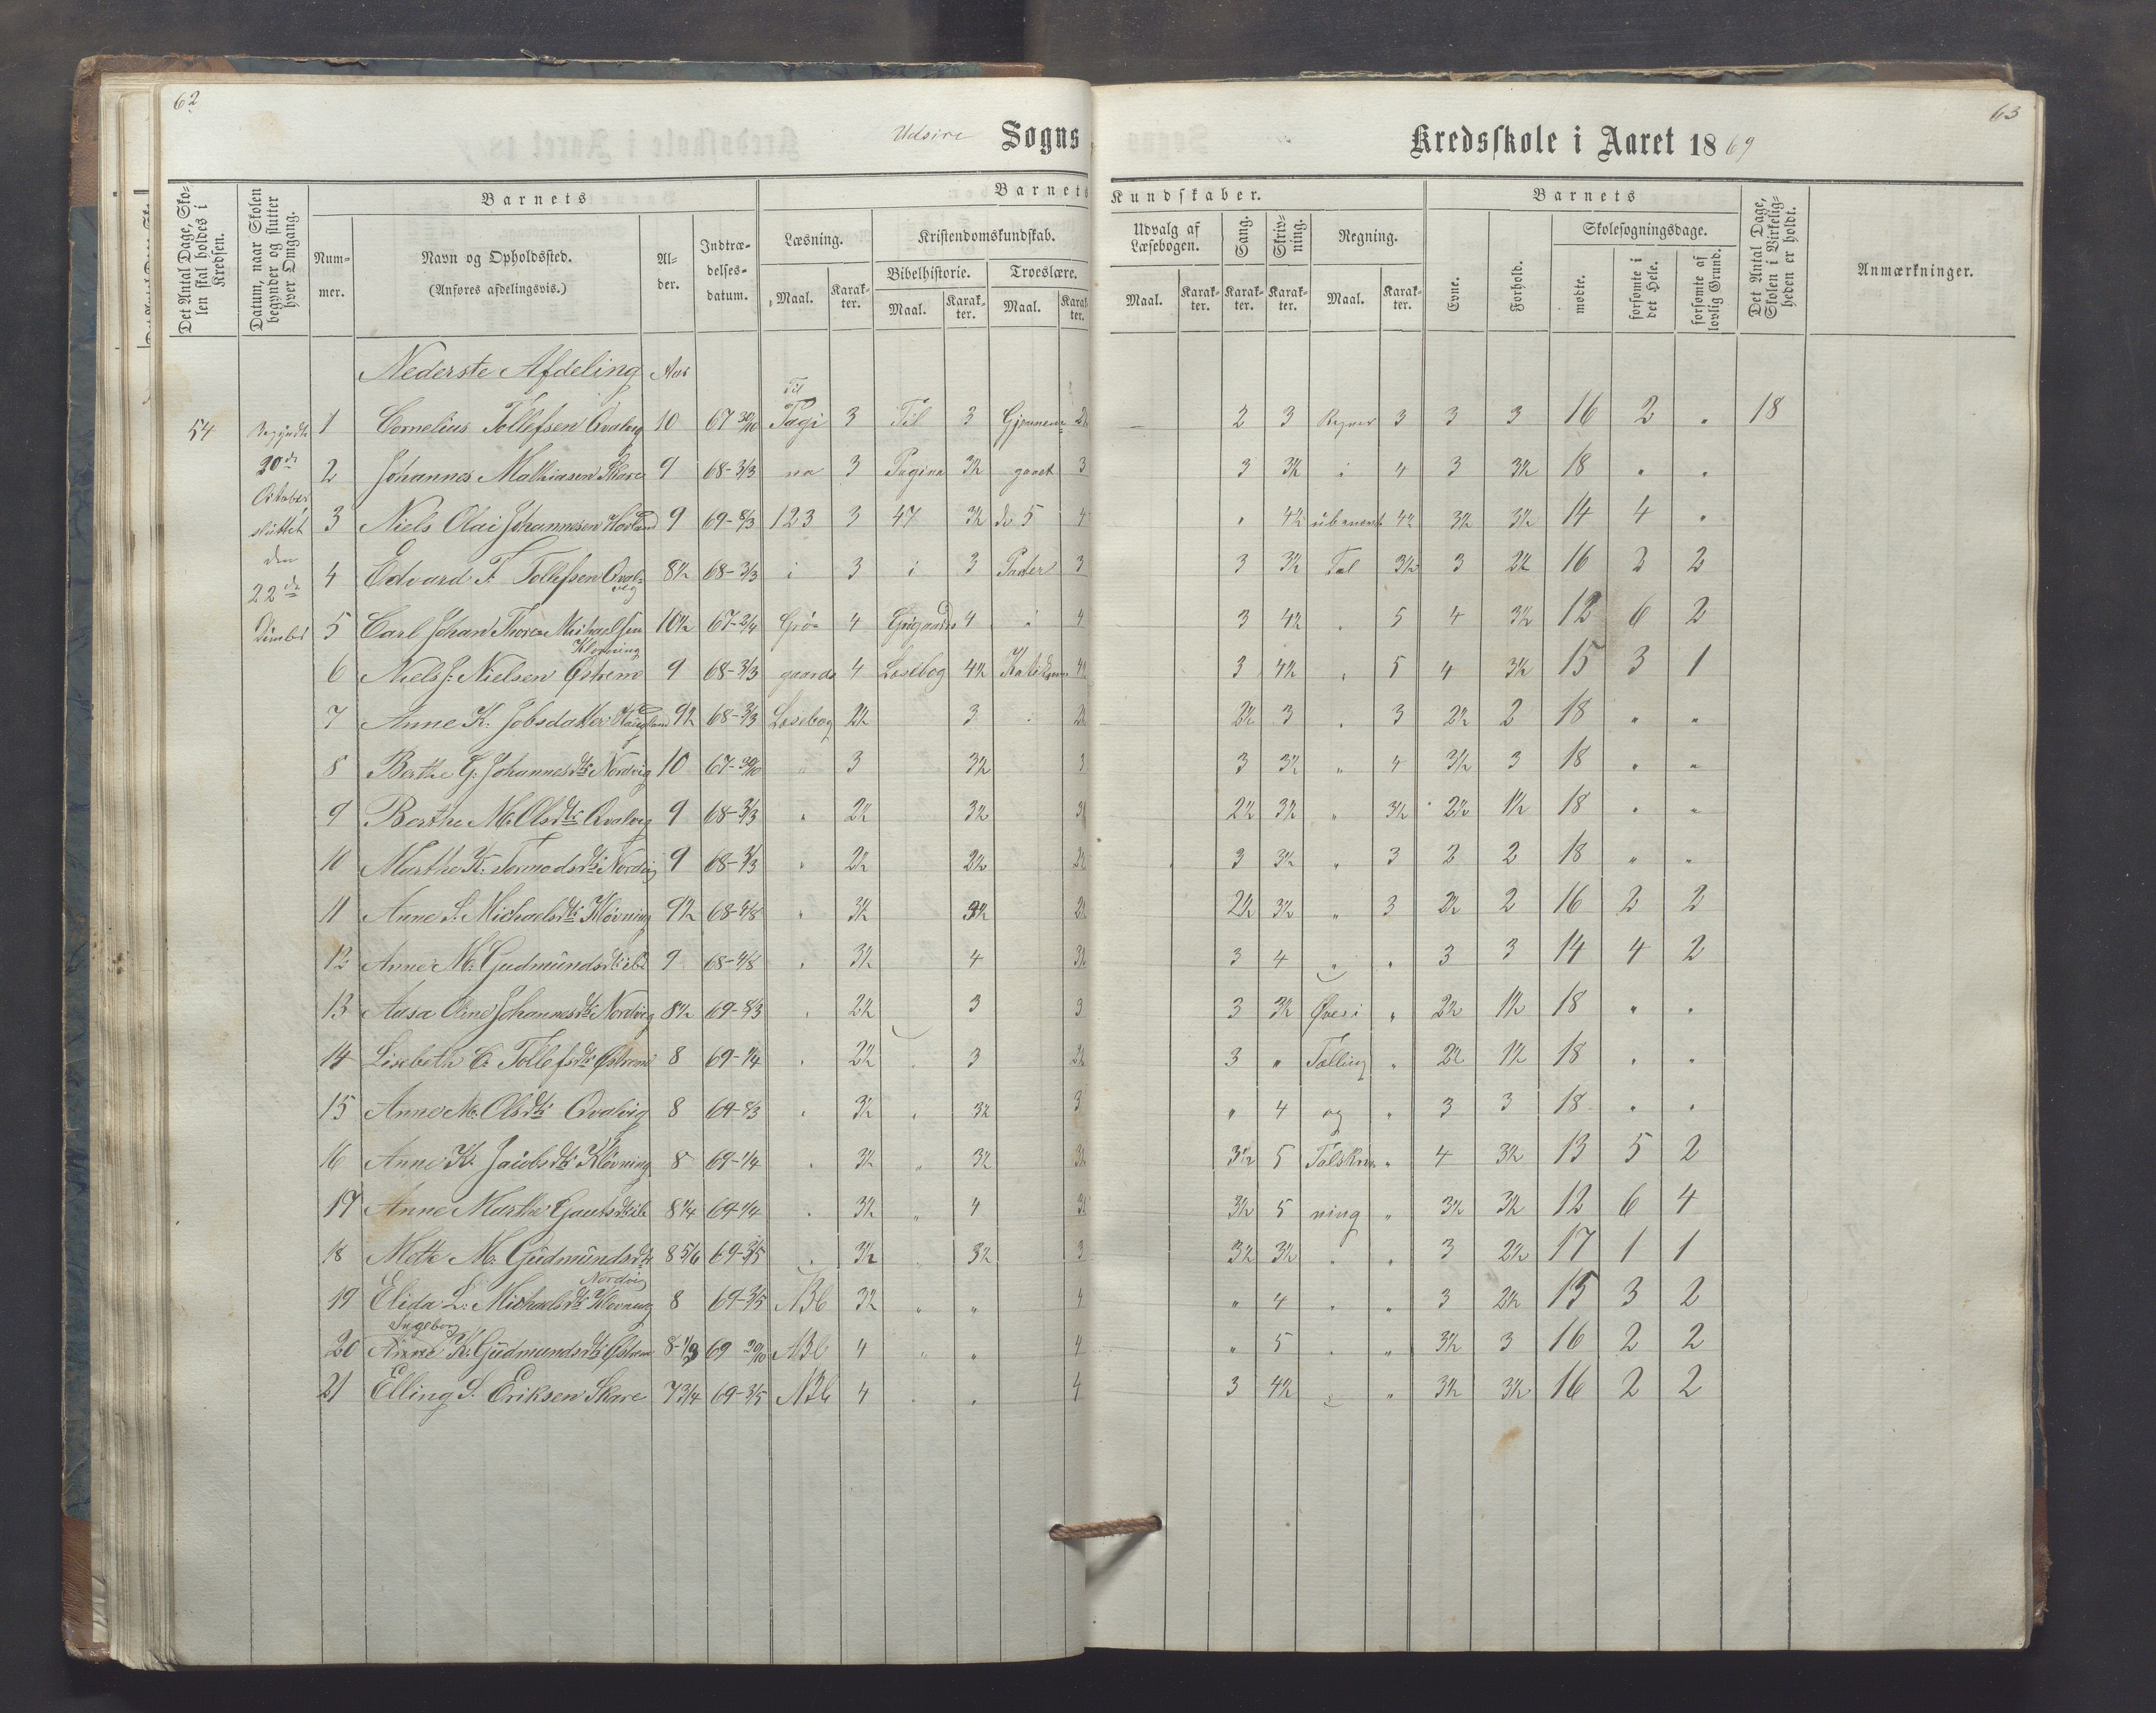 62
63
Udsire Sogns Kredsskole i Aaret 1869
Det Antal Dage, Skolen skal holdes i Kredsen.
Datum, naar Skolen begynder og slutter hver Omgang.
Barnets
Nummer.
Navn og Opholdssted.
(Anføres afdelingsvis.)
Alder.
Indtrædelsesdatum.
Barnets Kundskaber.
Læsning.
Maal. Karakter.
Kristendomskundskab.
Bibelhistorie. Troeslære.
Maal. Karakter. Maal. Karakter.
Udvalg af Læsebogen.
Maal. Karakter.
Sang. Karakter.
Skrivning. Karakter.
Regning.
Maal. Karakter.
Barnets
Evne. Forhold.
Skolesøgningsdage.
mødte. forsømte i det Hele. forsømte af lovlig Grund.
Det Antal Dage, Skolen i Virkeligheden er holdt.
Anmærkninger.
Nederste Afdeling Aar
54 Begyndte 30de October sluttet den 22de
1 Cornelius Tollefsen Qvalvig 10 67 30/10 Til Pagi 3 Til 3 Gjennem 2½ 2 3 Regner 3 3 3 16 2 " 18
2 Johannes Mathiasen Skare 9 68-3/3 na 3 Pagina 3½ gaaet 3 3 3½ i 4 3 3½ 18 " "
3 Niels Olai Johannesen Hovland 9 69-8/3 123 3 47 3½ de 5 4 " 4½ ubenævnt 4½ 3½ 3½ 14 4 "
4 Edvard T. Tollefsen Qvalvig 8½ 68-3/3 i 3 i 3 Parter 3 3 3½ Tal 3½ 3 2½ 16 2 2
5 Carl Johan Thores Michaelsen Klovning 10½ 67-2/4 Grø- 4 4 i 4 3 4½ " 5 4 3½ 12 6 2
6 Niels J. Nielsen Østrem 9 68-3/3 gaards 4 Læsebog 4½ 4½ 3 4½ " 5 4 3½ 15 3 1
7 Anne K. Jobsdatter Haugland 9½ 68-3/3 Læsebog 2½ 3 2½ 2½ 3 " 3 2½ 2 18 " "
8 Berthe G. Johannesdtr Nordvig 10 67-30/10 " 3 3½ 3 3 3½ " 4 3½ 3 18 " "
9 Berthe M. Olsdtr Qvalvig 9 68-3/3 " 2½ 3½ 3½ 2½ 3½ " 3½ 2½ 1½ 18 " "
10 Marthe K. Tormodsdtr Nordvig 9 68-3/3 " 2½ 2½ 2½ 3 3½ " 3 2 2 18 " "
11 Anne S. Michaelsdtr Kløvning 9½ 68-4/8 " 3½ 3½ 2½ 2½ 3½ " 3 2½ 2 16 2 2
12 Anne M. Gudmundsdtr ib 9 68-4/8 " 3½ 4 3½ 3 4 " " 3 3 14 4 2
13 Aasa Oline Johannesdtr Nordvig 8½ 69-8/3 " 2½ 3 3 3 3½ Øves i " 2½ 1½ 18 " "
14 Lisebeth E. Tollefsdtr Østrem 8 69-1/4 " 2½ " 3 2½ 3 " Tælling " 2½ 1½ 18 " "
15 Anne M. Olsdtr Qvalvig 8 69-8/3 " 3½ " 3½ 3 " 4 og " 3 3 18 " "
16 Anne K. Jacobsdtr Kløvning 8 69-1/4 " 3½ " 3½ 3½ 3½ 5 Talskriv " 4 3½ 13 5 2
17 Anne Marthe Gautsdtr ib 8¼ 69-1/4 " 3½ " 4 3½ 3½ 5 ning " 3½ 3½ 12 6 4
18 Mette M. Gudmundsdtr Nordvig 8 5/6 69-3/5 " 3½ " 3½ 3 3½ 3½ " " 3 2½ 17 1 1
19 Elida L. Michaelsdtr Klovning 8 69-3/5 ABC 3½ " " 4 " 4 " " 3 2½ 15 3 2
20 Ingeborg K. Gudmundsdtr Østrem 8-1/3 69 30/10 ABC 4 " " 4 " 5 " " 3½ 3 16 2 2
21 Elling S. Eriksen Skare 7¾ 69-3/5 ABC 4 " " 4 3 4½ " " 3½ 3½ 16 2 2